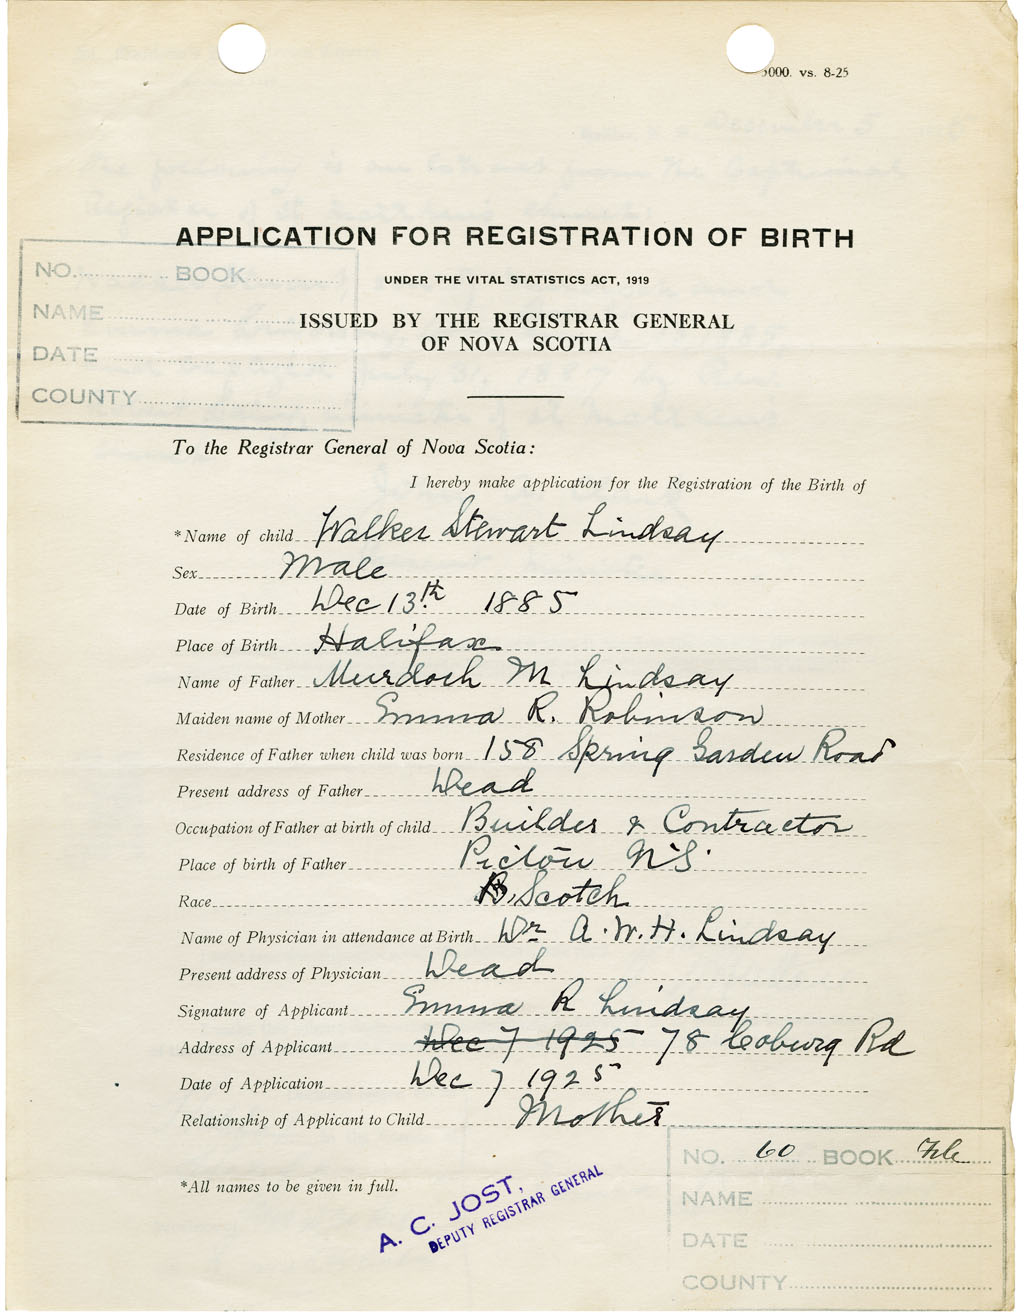 5000. vs. 8-25
APPLICATION FOR REGISTRATION OF BIRTH
UNDER THE VITAL STATISTICS ACT, 1919
ISSUED BY THE REGISTRAR GENERAL
OF NOVA SCOTIA
NO. BOOK
NAME
DATE
COUNTY
To the Registrar General of Nova Scotia:
I hereby make application for the Registration of the Birth of
*Name of child Walker Stewart Lindsay
Sex Male
Date of Birth Dec 13th 1885
Place of Birth Halifax
Name of Father Murdoch M Lindsay
Maiden name of Mother Emma R. Robinson
Residence of Father when child was born 158 Spring Garden Road
Present address of Father Dead
Occupation of Father at birth of child Builder & Contractor
Place of birth of Father Pictou N.S.
Race Scotch
Name of Physician in attendance at Birth Dr A. W. H. Lindsay
Present address of Physician Dead
Signature of Applicant Emma R Lindsay
Address of Applicant Dec 7 1925 78 Coburg Rd
Date of Application Dec 7 1925
Relationship of Applicant to Child Mother
*All names to be given in full.
A. C. JOST,
DEPUTY REGISTRAR GENERAL
NO. 60 BOOK File
NAME
DATE
COUNTY